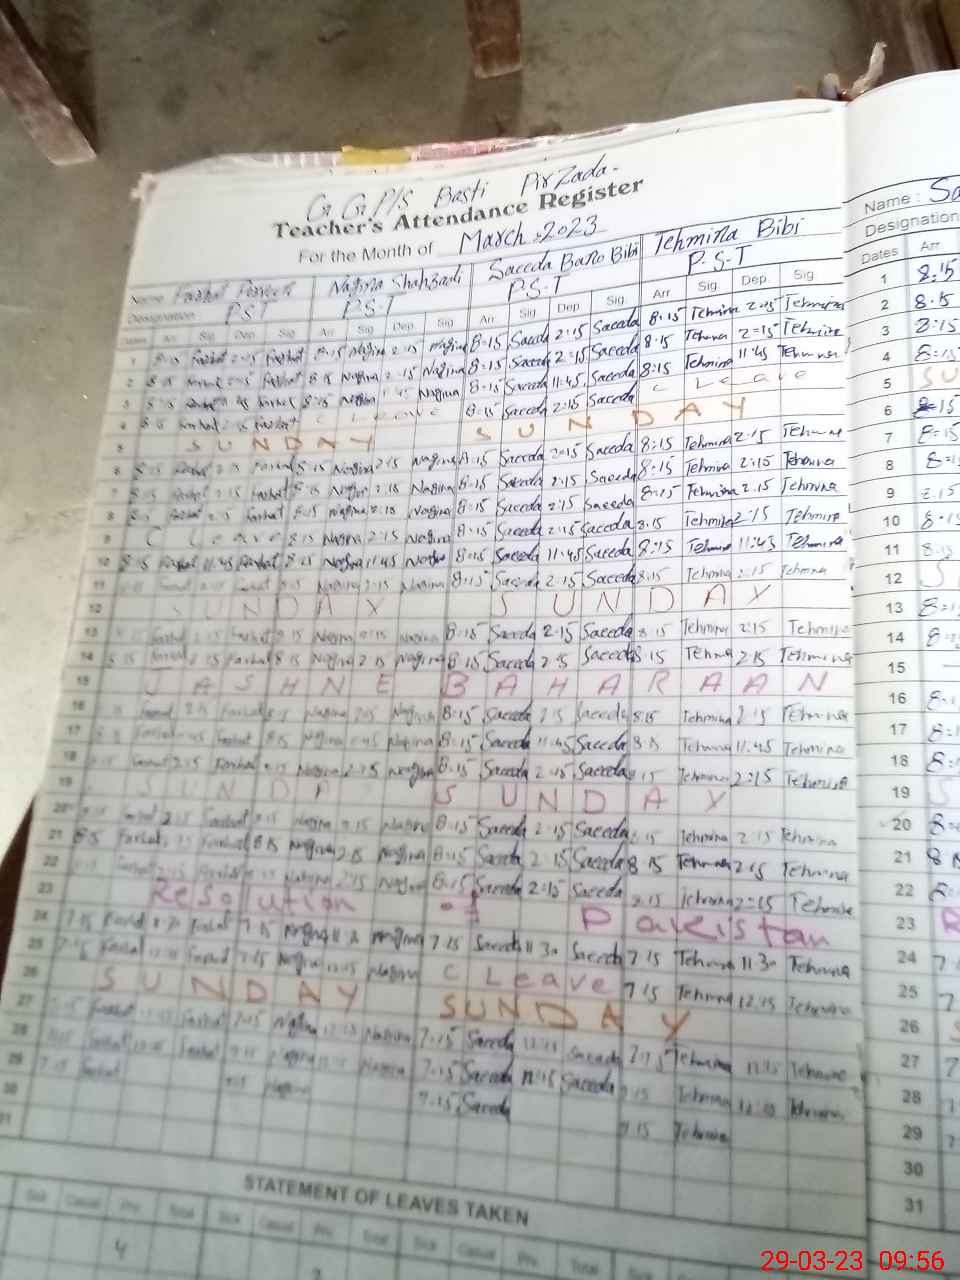 G.G.P/S Basti Pirzada.
Teacher's Attendance Register
For the Month of March.2023
Name Farhat Nagina Shahzadi Saeeda Bano Bibi Tehmina Bibi
Designation P.S.T P.S.T P.S.T P.S.T
Dates Sig Dep Sig Arr Sig Dep. Sig Arr Sig Dep Sig Arr Sig Dep. Sig
1 8:15 Farhat 2:15 Farhat 8:15 Nagina 2:15 Nagina 8:15 Saeeda 2:15 Saeeda 8:15 Tehmina 2:15 Tehmina
2 8:15 2:15 Farhat 8:15 Nagina 2:15 Nagina 8:15 Saeeda 2:15 Saeeda 8:15 Tehmina 2:15 Tehmina
3 8:15 Farhat 8:15 Nagina 11:45 Nagina 8:15 Saeeda 11:45 Saeeda 8:15 Tehmina 11:45 Tehmina
4 8:15 Farhat 2:15 Farhat C Leave 8:15 Saeeda 2:15 Saeeda C Leave
5 SUNDAY SUNDAY
6 8:15 Farhat 2:15 Farhat 8:15 Nagina 2:15 Nagina 8:15 Saeeda 2:15 Saeeda 8:15 Tehmina 2:15 Tehmina
7 8:15 Farhat 2:15 Farhat 8:15 Nagina 2:15 Nagina 8:15 Saeeda 2:15 Saeeda 8:15 Tehmina 2:15 Tehmina
8 8:15 Farhat 2:15 Farhat 8:15 Nagina 2:15 Nagina 8:15 Saeeda 2:15 Saeeda 8:15 Tehmina 2.15 Tehmina
9 C Leave 8:15 Nagina 2:15 Nagina 8:15 Saeeda 2:15 Saeeda 8:15 Tehmina 2:15 Tehmina
10 8:15 Farhat 11:45 Farhat 8:15 Nagina 11:45 Nagina 8:15 Saeeda 11:45 Saeeda 8:15 Tehmina 11:45 Tehmina
11 Farhat 8:15 Nagina 2:15 Nagina 8:15 Saeeda 2:15 Saeeda 8:15 Tehmina 2:15 Tehmina
12 SUNDAY SUNDAY
13 Farhat 2:15 Farhat 8:15 Nagina 2:15 Nagina 8:15 Saeeda 2:15 Saeeda 8:15 Tehmina 2:15 Tehmina
14 8:15 Farhat 2:15 Farhat 8:15 Nagina 2:15 Nagina 8:15 Saeeda 2:15 Saeeda 8:15 Tehmina 2:15 Tehmina
15 JASHNE BAHARAAN
16 Farhat 2:15 Farhat 8:15 Nagina 2:15 Nagina 8:15 Saeeda 2:15 Saeeda 8:15 Tehmina 2:15 Tehmina
17 8:15 Farhat 11:45 Farhat 8:15 Nagina 11:45 Nagina 8:15 Saeeda 11:45 Saeeda 8:15 Tehmina 11:45 Tehmina
18 Farhat 2:15 Farhat 8:15 Nagina 2:15 Nagina 8:15 Saeeda 2:15 Saeeda 8:15 Tehmina 2:15 Tehmina
19 SUNDA SUNDAY
20 8:15 Farhat 2:15 Farhat 8:15 Nagina 2:15 Nagina 8:15 Saeeda 2:15 Saeeda 8:15 Tehmina 2:15 Tehmina
21 8:15 Farhat 2:15 Farhat 8:15 Nagina 2:15 Nagina 8:15 Saeeda 2:15 Saeeda 8:15 Tehmina 2:15 Tehmina
22 Farhat 2:15 Farhat 8:15 Nagina 2:15 Nagina 8:15 Saeeda 2:15 Saeeda 8:15 Tehmina 2:15 Tehmina
23 Resolution of Pakistan
24 7:15 Farhat 11:30 Farhat 7:15 Nagina 11:30 Nagina 7:15 Saeeda 11:30 Saeeda 7:15 Tehmina 11:30 Tehmina
25 7:15 Farhat 12:15 Farhat 7:15 Nagina 12:15 Nagina C Leave 7:15 Tehmina 12:15 Tehmina
26 SUNDAY SUNDAY
27 7:15 Farhat 12:15 Farhat 7:15 Nagina 12:15 Nagina 7:15 Saeeda 12:15 Saeeda 7:15 Tehmina 12:15 Tehmina
28 7:15 Farhat 12:15 Farhat 7:15 Nagina Nagina 7:15 Saeeda 12:15 Saeeda 7:15 Tehmina 12:15 Tehmina
29 7:15 Farhat 7:15 Nagina 7:15 Saeeda 7:15 Tehmina
30
31
STATEMENT OF LEAVES TAKEN
Sick Casual Prv. Total Sick Casual Prv. Total Sick Casual Prv. Total
4
Name : Sa
Designation
Dates Arr
1 8:15
2 8:15
3 8:15
4 8:15
5 SU
6 8:15
7 8:15
8 8:1
9 2.15
10 8:15
11 8:15
12 S
13 8:1
14 8:
15 —
16 8:1
17 8:1
18 8:
19 S
20 8:
21 8:15
22 8:
23 R
24 7:
25 7
26 S
27 7
28
29
30
31
29-03-23 09:56